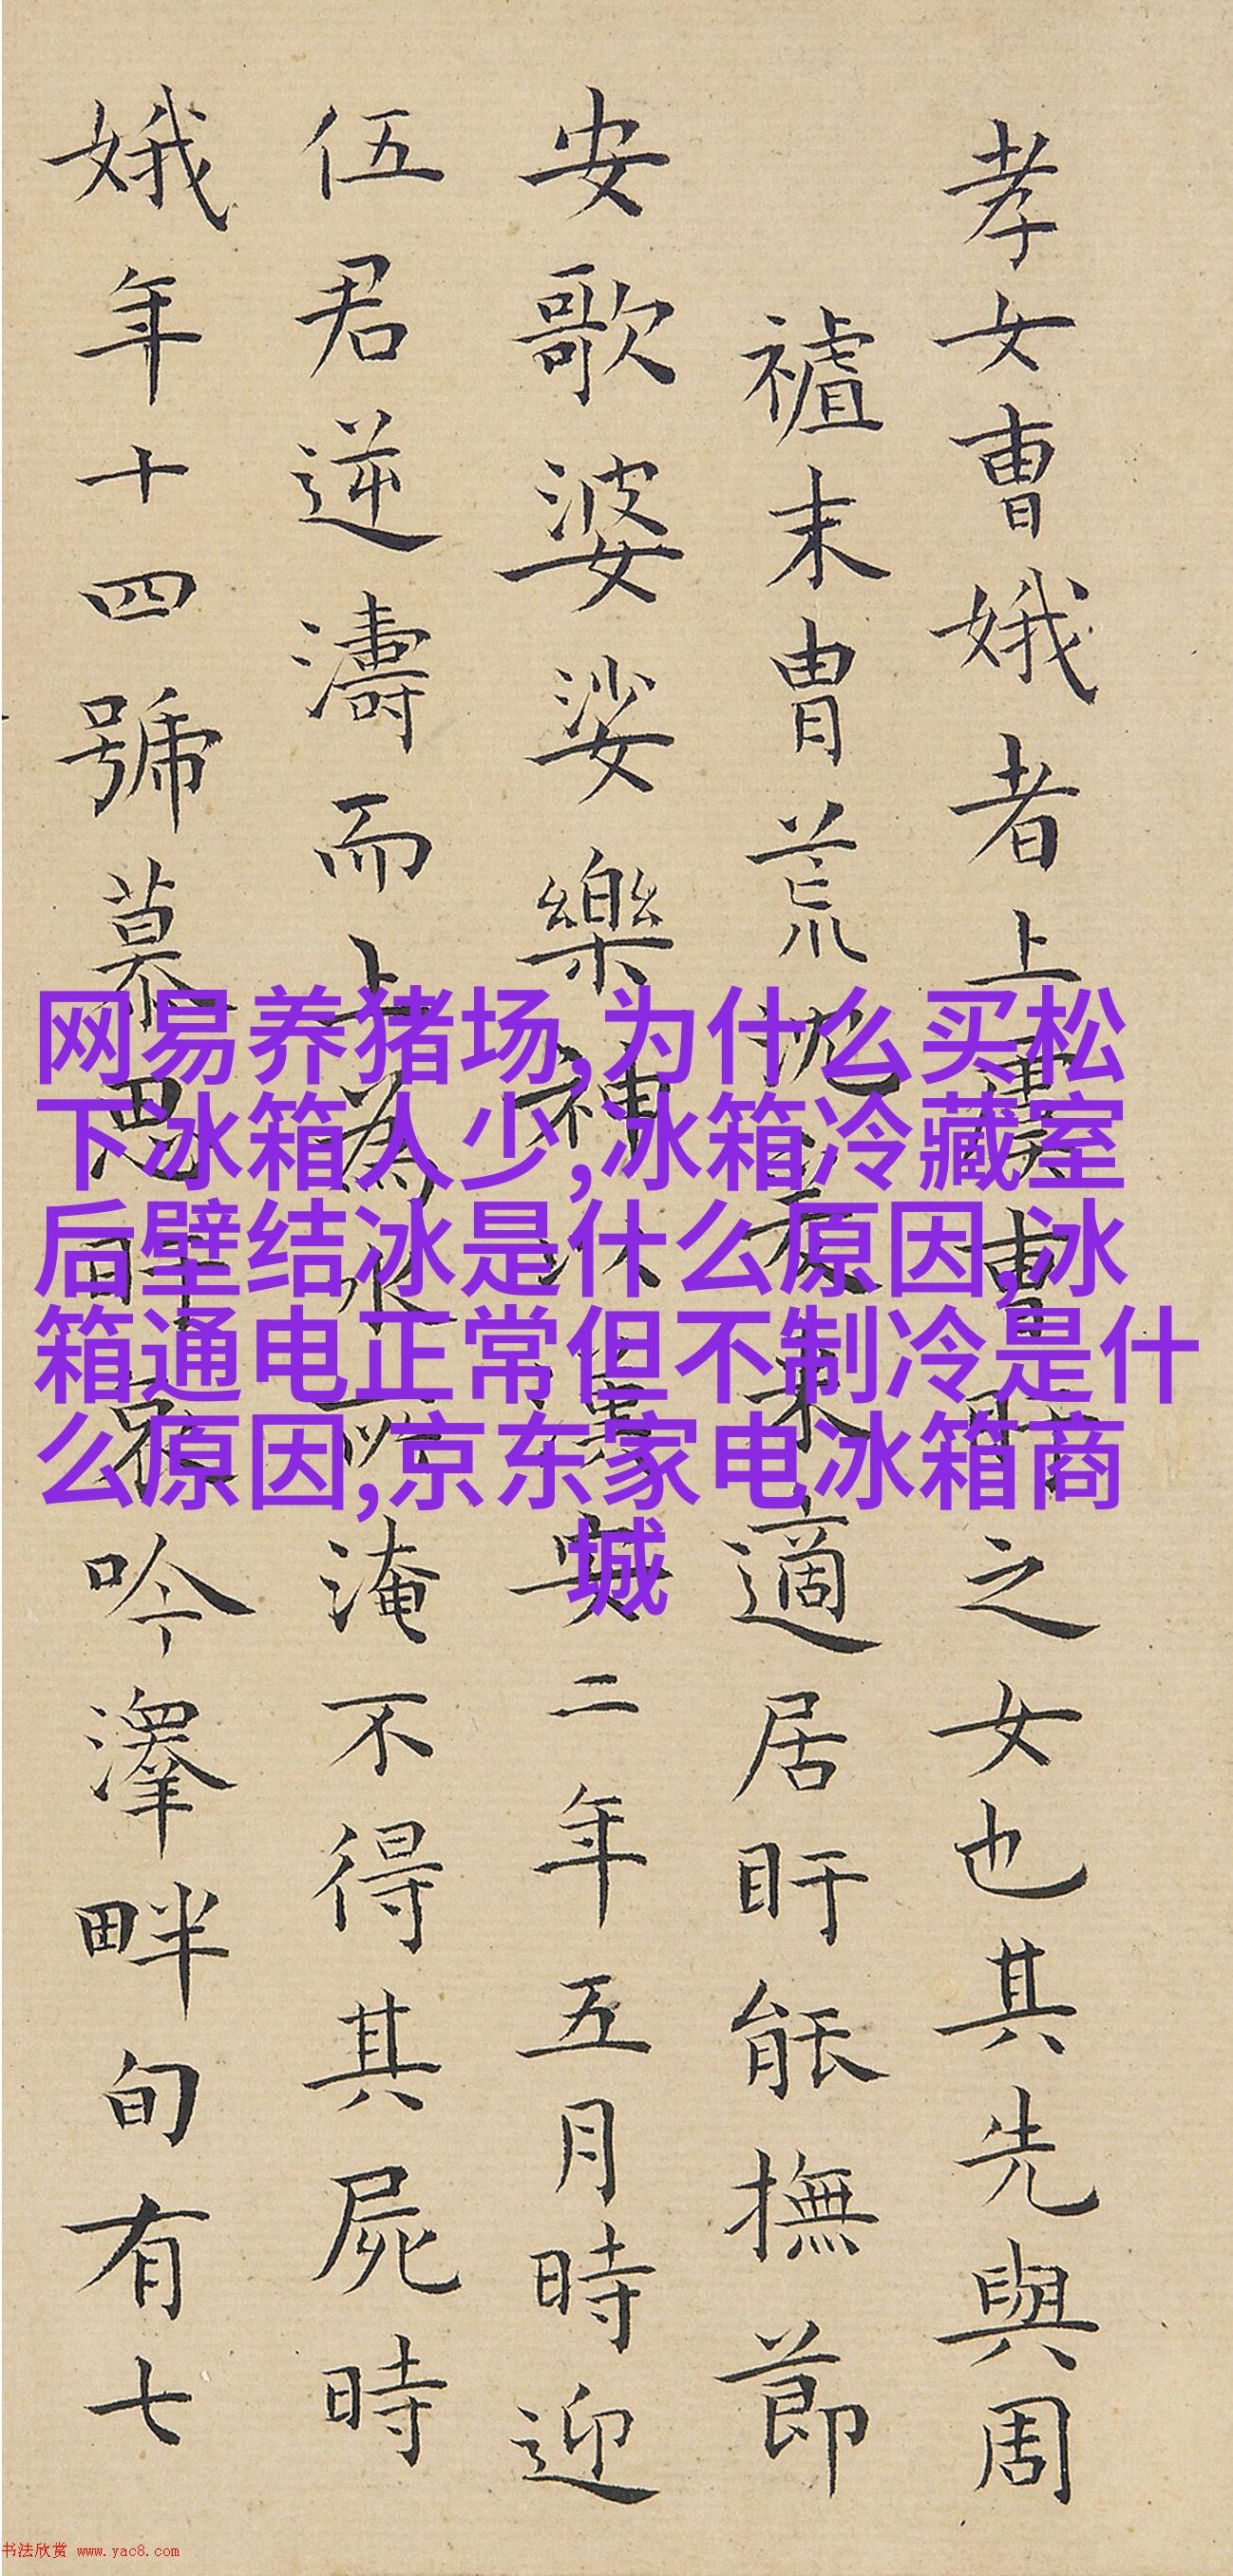 孝女曹娥者上虞曹盱之女也其先與周
禇末胄荒沈爰来適居盱能撫節
安歌婆娑樂神以漢安二年五月時迎
伍君逆濤而上為水所淹不得其屍時
娥年十四號慕思盱哀吟澤畔旬有七
网易养猪场,为什么买松
下冰箱人少,冰箱冷藏室
后壁结冰是什么原因,冰
箱通电正常但不制冷是什
么原因,京东家电冰箱商
城
书法欣赏 www.yac8.com